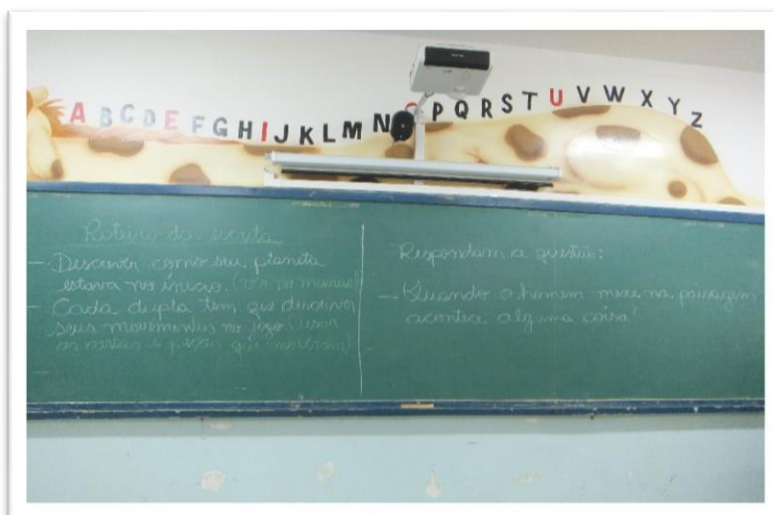 A B C D E F G H I J K L M N O P Q R S T U V W X Y Z
Roteiro da escrita
- Descrever como seu planeta
estava no início. (ver no manual)
- Cada dupla tem que descrever
seus movimentos no jogo (usar
as cartas e peças que
Respondam a questão:
- Quando o homem mexe na paisagem
acontece alguma coisa?